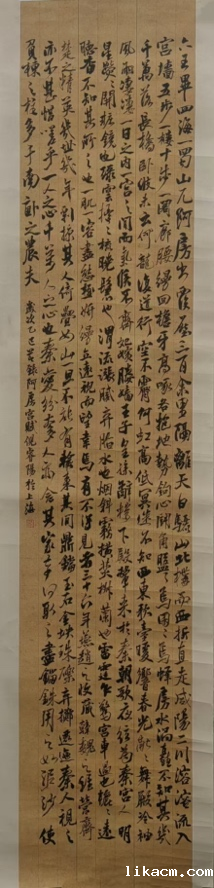 六王畢四海一蜀山兀阿房出覆壓三百余里隔離天日驪山北構而西折直走咸陽二川溶溶流入
宮墻五步一樓十步一閣廊腰縵回檐牙高啄各抱地勢鉤心鬥角盤盤焉囷囷焉蜂房水渦矗不知其幾
千萬落長橋臥波未云何龍復道行空不霽何虹高低冥迷不知西東歌臺暖響春光融融舞殿冷袖
風雨凄凄一日之內一宮之間而氣候不齊妃嬪媵嬙王子皇孫辭樓下殿輦來於秦朝歌夜弦為秦宮人明
星熒熒開妝鏡也綠雲擾擾梳曉鬟也渭流漲膩棄脂水也煙斜霧橫焚椒蘭也雷霆乍驚宮車過也轆轆遠
聽杳不知其所之也一肌一容盡態極妍縵立遠視而望幸焉有不得見者三十六年燕趙之收藏韓魏之經營齊
楚之精英幾世幾年剽掠其人倚疊如山一旦不能有輸來其間鼎鐺玉石金塊珠礫棄擲邐迤秦人視之
亦不甚惜嗟乎一人之心千萬人之心也秦愛紛奢人亦念其家奈何取之盡錙銖用之如泥沙使
負棟之柱多于南畝之農夫
歲次乙巳錄阿房宮賦倪寧陽於上海
likacm.com